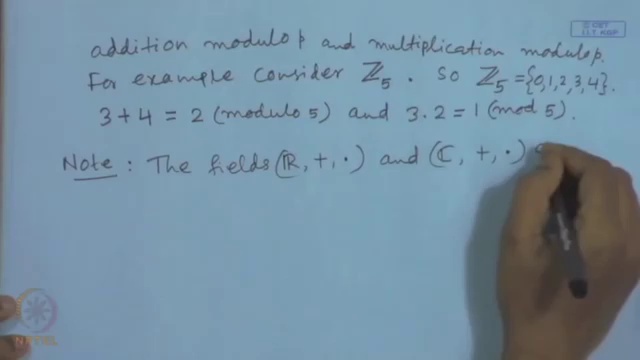 © CET
I.I.T. KGP
addition modulo p and multiplication modulo p.
For example consider ℤ₅. So ℤ₅ = {0,1,2,3,4}.
3+4 = 2 (modulo 5) and 3.2 = 1 (mod 5).
Note: The fields (ℝ, +, ·) and (ℂ, +, ·)
NPTEL